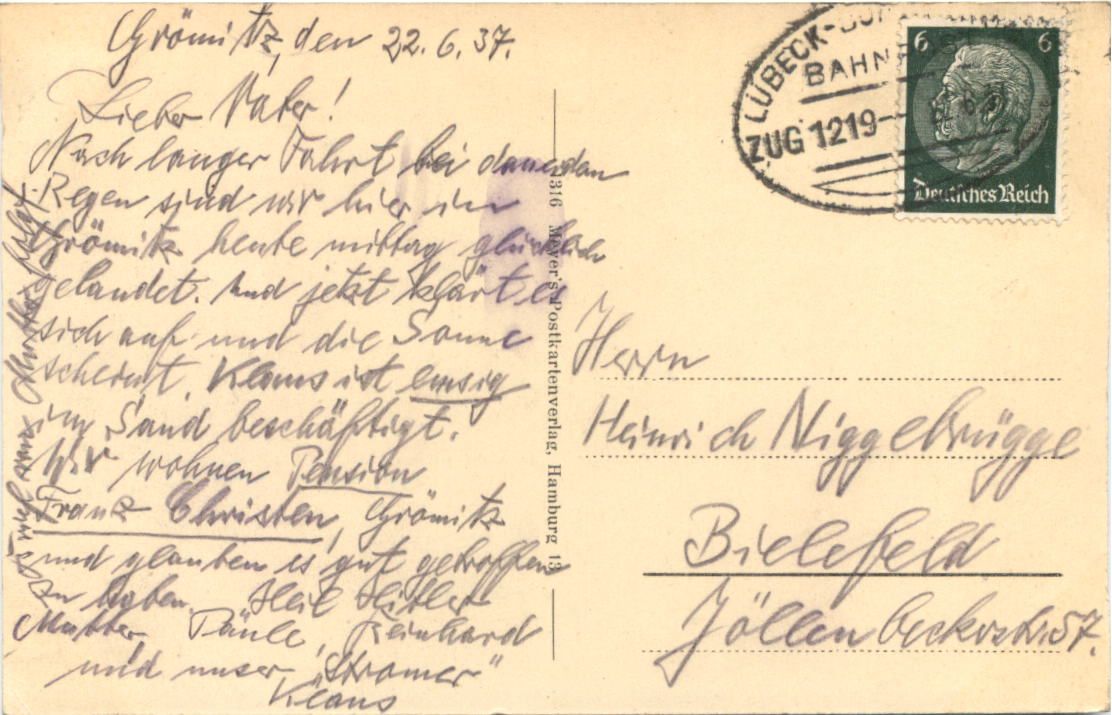 Grömitz, den 22.6.37.
Lieber Vater!
Nach langer Fahrt bei dauerndem
Regen sind wir hier in
Grömitz heute mittag glücklich
gelandet. Und jetzt klärt es
sich auf und die Sonne
scheint. Klaus ist emsig
im Sand beschäftigt.
Wir wohnen Pension
Franz Christen, Grömitz
und glauben es gut getroffen
zu haben. Heil Hitler
Mutter, Paule, Reinhard
und unser "Stromer"
Klaus
1316 Meyer's Postkartenverlag, Hamburg 13
LÜBECK-
BAHNPOST
ZUG 1219
6 6
Deutsches Reich
Herrn
Heinrich Niggebrügge
Bielefeld
Jöllenbeckerstr. 57.